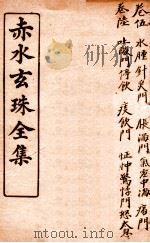 卷伍 水腫針灸門 脹滿門 氣虛中滿 痞門
卷陸 門 痰飲門 怔忡驚悸門
赤水玄珠全集